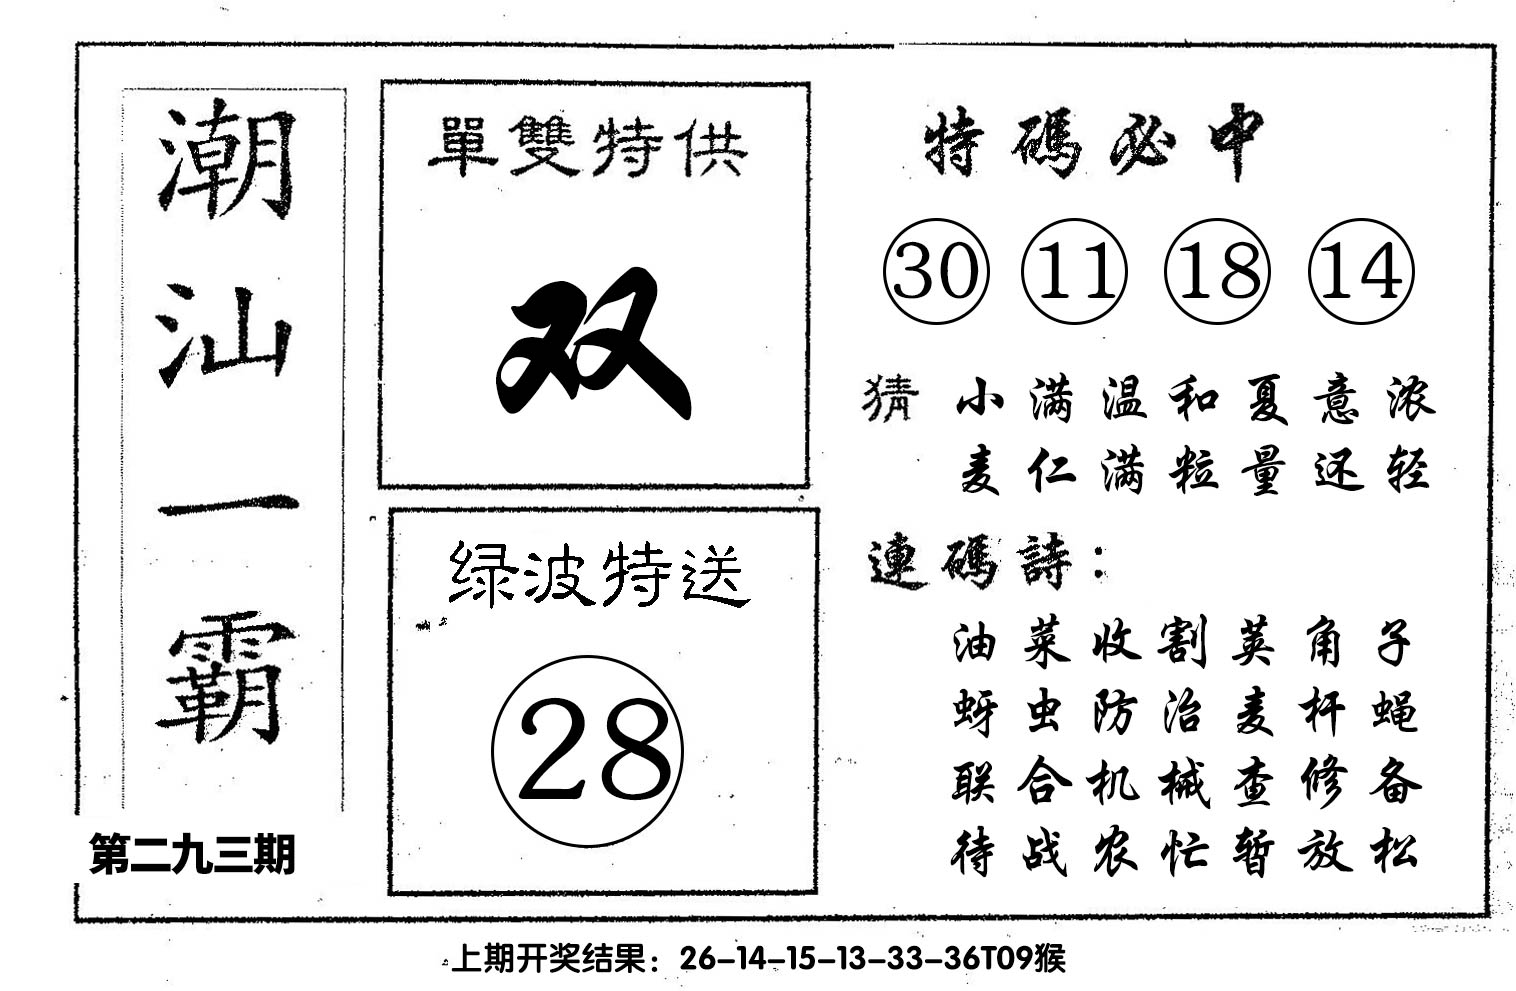 潮汕一霸
第二九三期
單雙特供
双
绿波特送
28
特碼必中
30 11 18 14
猜 小满温和夏意浓
麦仁满粒量还轻
連碼詩：
油菜收割荚角子
蚜虫防治麦杆蝇
联合机械查修备
待战农忙暂放松
上期开奖结果：26-14-15-13-33-36T09猴